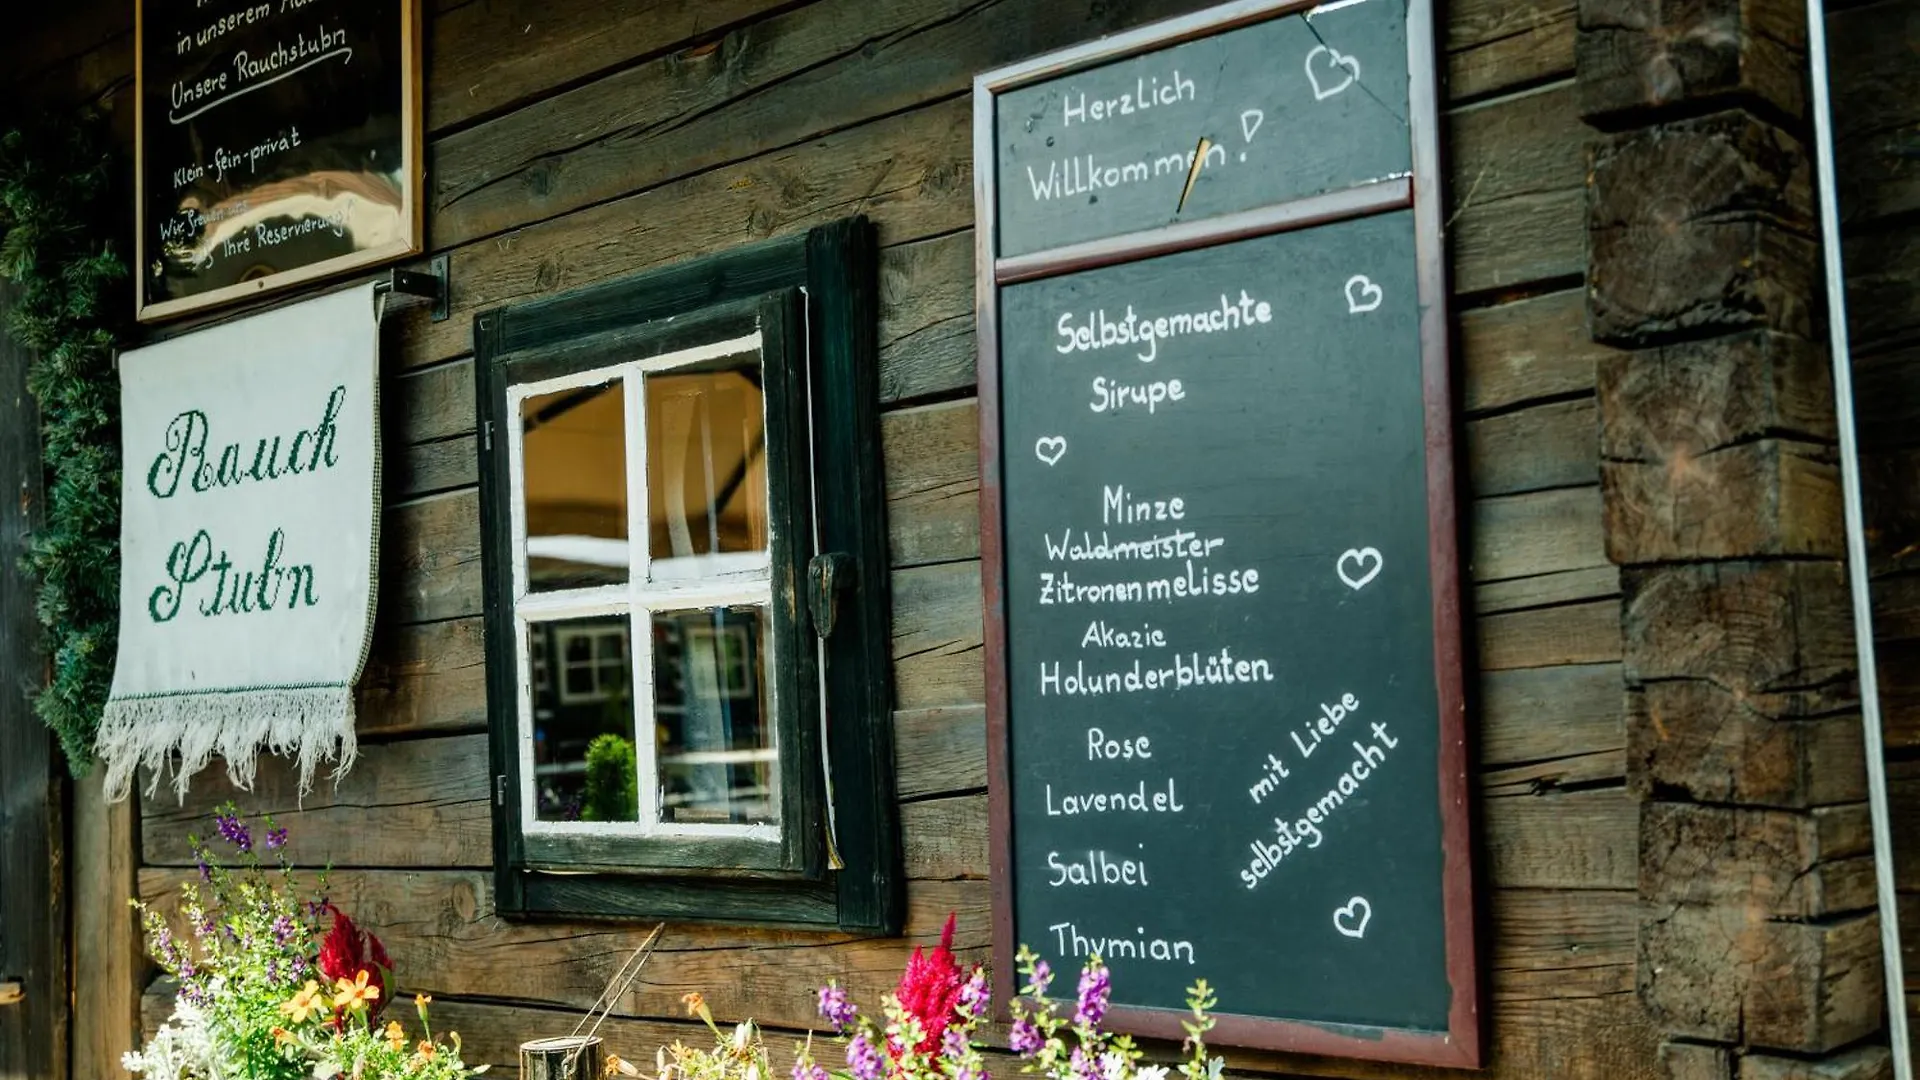 in unserem
Unsere Rauchstubn
Klein-fein-privat
Wir freuen uns
Ihre Reservierung!
Rauch
Stubn
Herzlich
Willkommen!
Selbstgemachte
Sirupe
Minze
Waldmeister
Zitronenmelisse
Akazie
Holunderblüten
Rose
Lavendel
Salbei
Thymian
mit Liebe
selbstgemacht